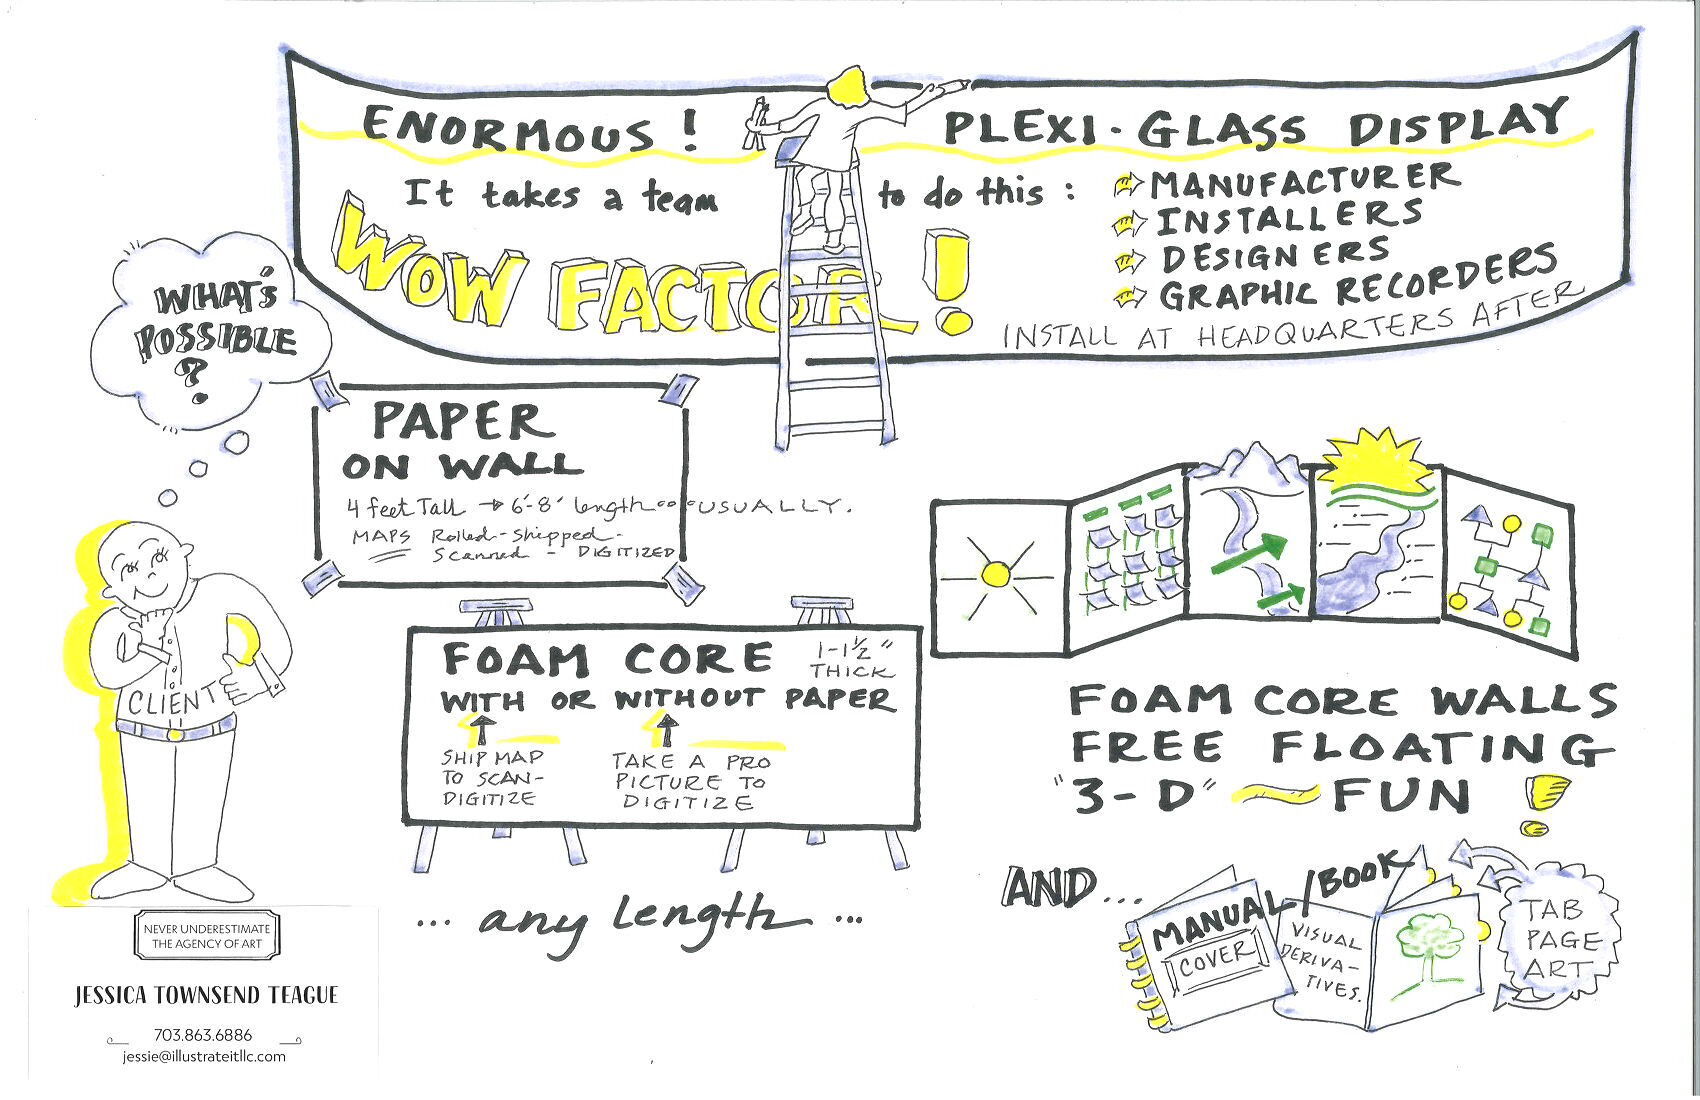 ENORMOUS! PLEXI-GLASS DISPLAY
It takes a team to do this:
MANUFACTURER
INSTALLERS
DESIGNERS
GRAPHIC RECORDERS
INSTALL AT HEADQUARTERS AFTER
WOW FACTOR!
WHAT'S
POSSIBLE
?
PAPER
ON WALL
4 feet Tall → 6'-8' length USUALLY.
MAPS Rolled-Shipped-
Scanned - DIGITIZED
CLIENT
FOAM CORE
1-1½"
THICK
WITH OR WITHOUT PAPER
SHIP MAP
TO SCAN-
DIGITIZE
TAKE A PRO
PICTURE TO
DIGITIZE
... any length ...
FOAM CORE WALLS
FREE FLOATING
"3-D" ~ FUN!
AND...
MANUAL/BOOK
COVER
VISUAL
DERIVA-
TIVES.
TAB
PAGE
ART
NEVER UNDERESTIMATE
THE AGENCY OF ART
JESSICA TOWNSEND TEAGUE
703.863.6886
jessie@illustrateitllc.com